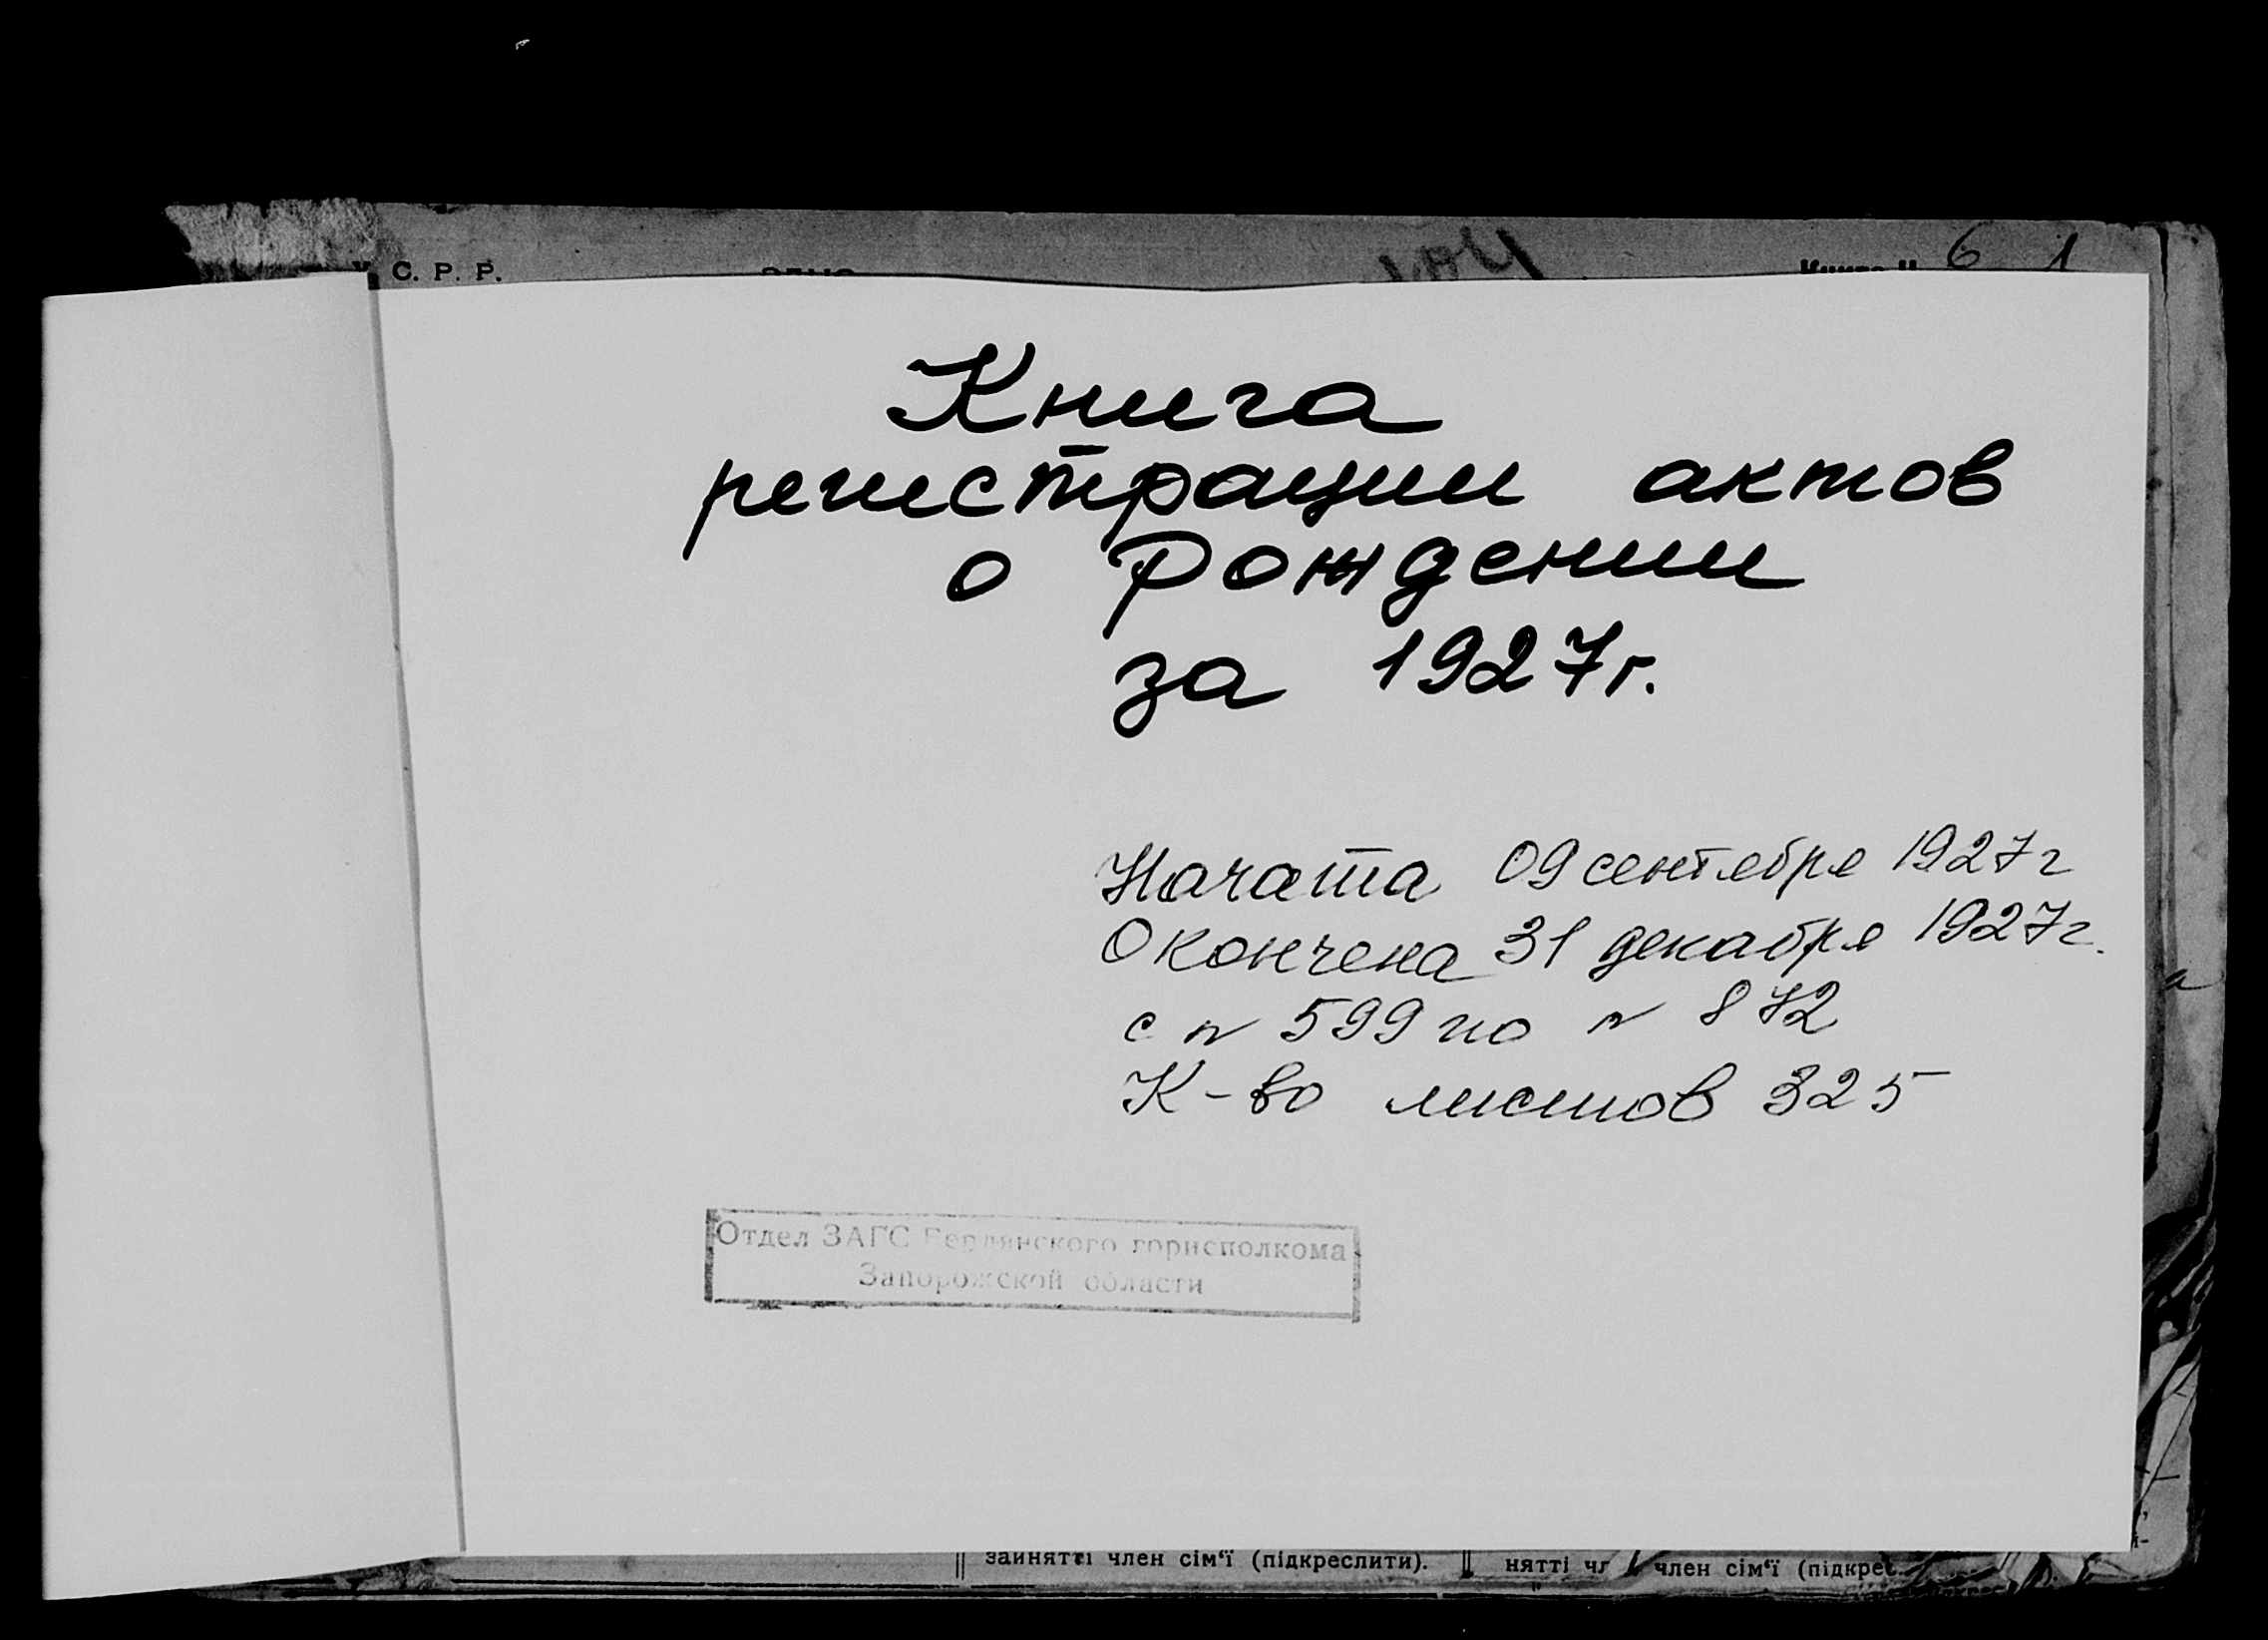 С. Р. Р.
6 1
Книга
регистрации актов
о рождении
за 1927г.
Начата 09 сентября 1927г
Окончена 31 декабря 1927г.
с № 599 по № 872
К-во листов 325
Отдел ЗАГС Бердянского горисполкома
Запорожской области
зайняттi член сім‘ї (підкреслити).
нятті член сім‘ї